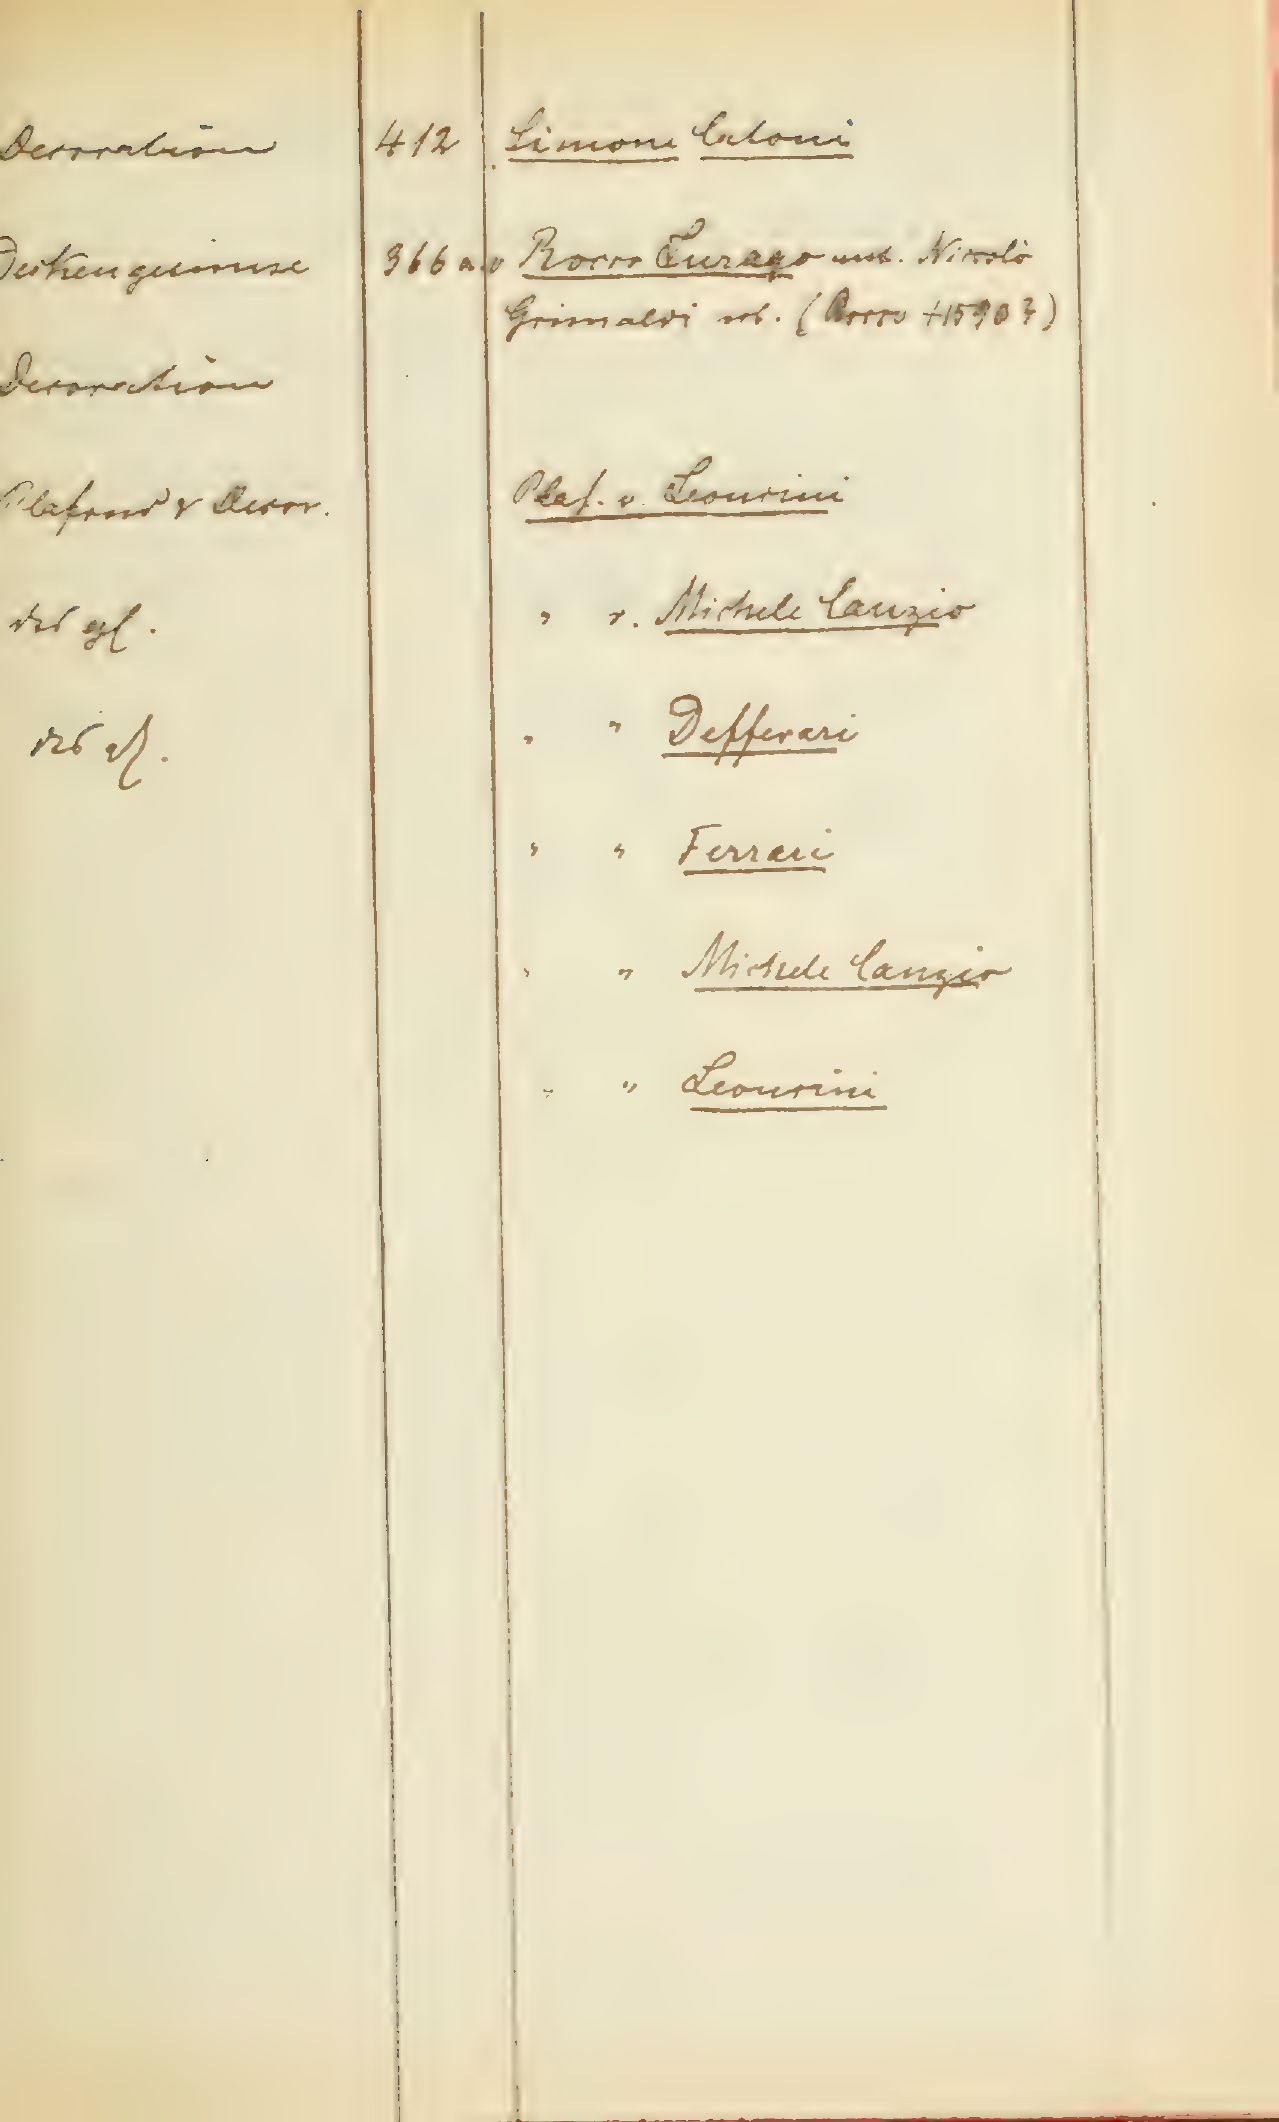 Decoration 412 Simone Catoni
Deckengemmuse 366 a.v Rocco Lurago unt. Niccolò
Grimaldi (Rocco †1590?)
Decoration
Plafond & Decor. Plaf. v. Leoncini
desgl. " v. Michele Canzio
desgl. " " Defferari
" " Ferrari
" " Michele Canzio
" " Leoncini